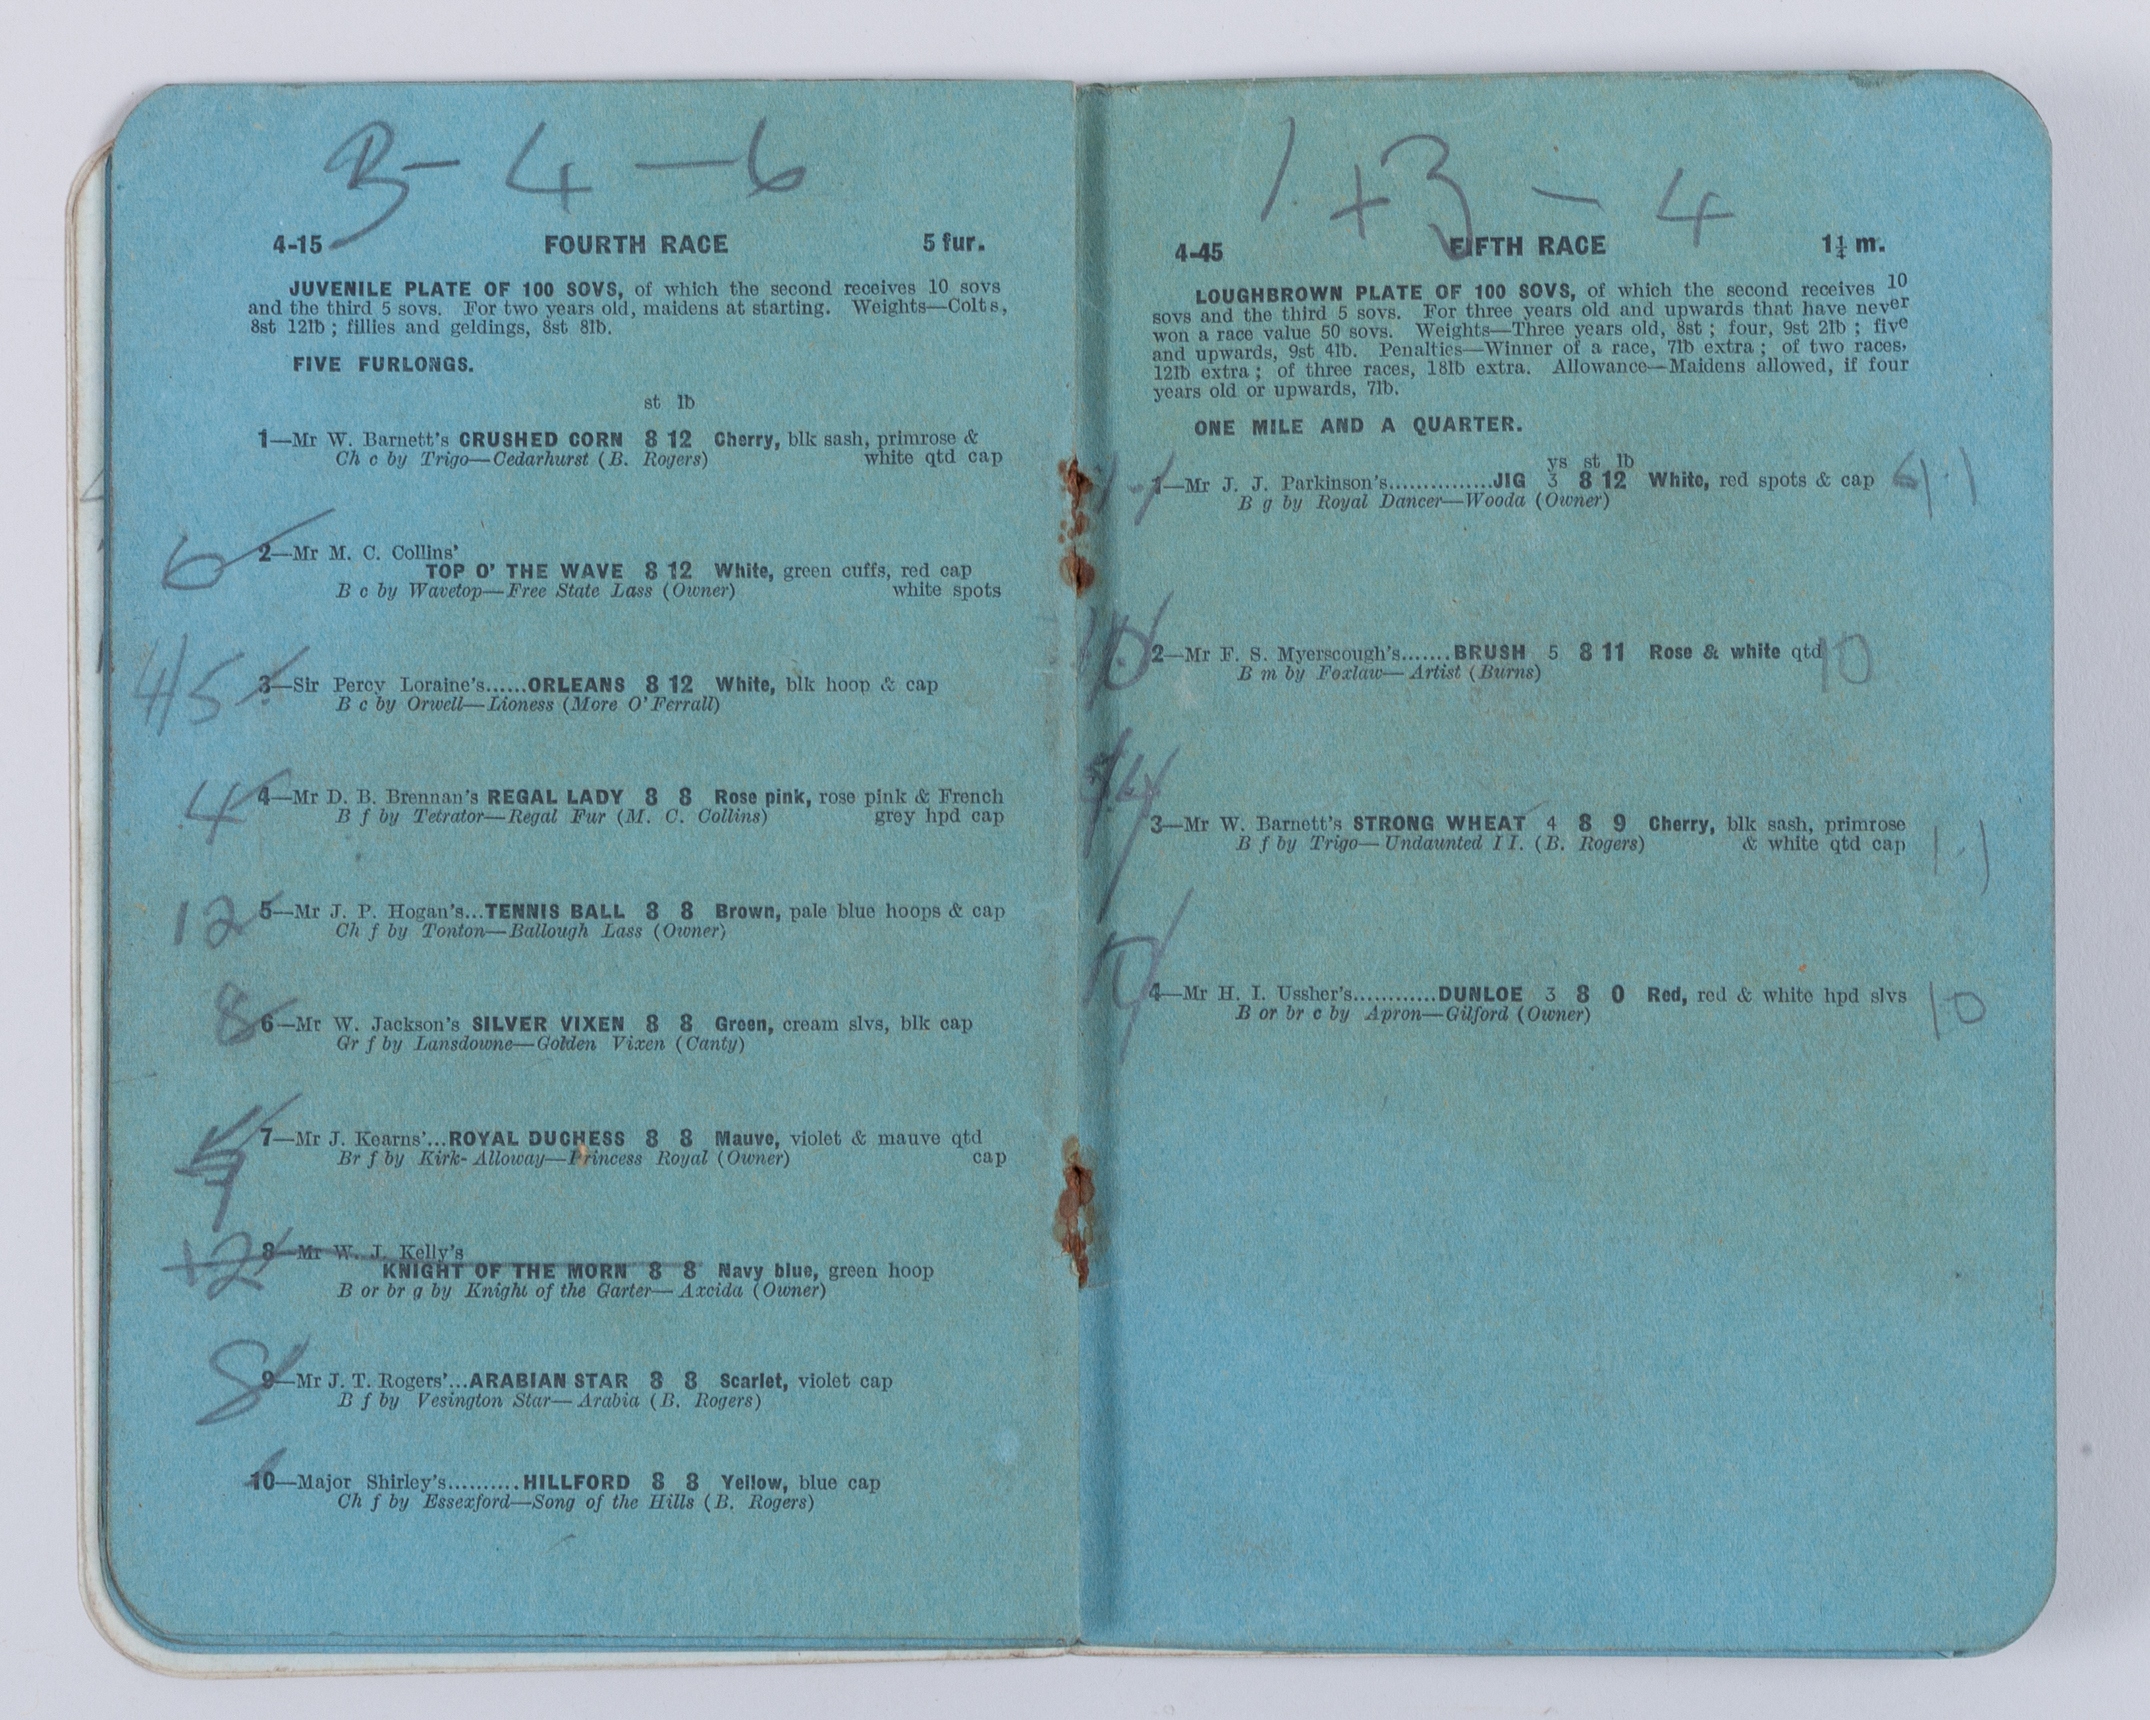 3 - 4 - 6
4-15 FOURTH RACE 5 fur.
JUVENILE PLATE OF 100 SOVS, of which the second receives 10 sovs
and the third 5 sovs. For two years old, maidens at starting. Weights—Colts,
8st 12lb ; fillies and geldings, 8st 8lb.
FIVE FURLONGS.
st lb
1—Mr W. Barnett's CRUSHED CORN 8 12 Cherry, blk sash, primrose &
Ch c by Trigo—Cedarhurst (B. Rogers) white qtd cap
6 2—Mr M. C. Collins'
TOP O' THE WAVE 8 12 White, green cuffs, red cap
B c by Wavetop—Free State Lass (Owner) white spots
3—Sir Percy Loraine's......ORLEANS 8 12 White, blk hoop & cap
B c by Orwell—Lioness (More O'Ferrall)
4 4—Mr D. B. Brennan's REGAL LADY 8 8 Rose pink, rose pink & French
B f by Tetrator—Regal Fur (M. C. Collins) grey hpd cap
12 5—Mr J. P. Hogan's...TENNIS BALL 8 8 Brown, pale blue hoops & cap
Ch f by Tonton—Ballough Lass (Owner)
8 6—Mr W. Jackson's SILVER VIXEN 8 8 Green, cream slvs, blk cap
Gr f by Lansdowne—Golden Vixen (Canty)
7—Mr J. Kearns'...ROYAL DUCHESS 8 8 Mauve, violet & mauve qtd
Br f by Kirk-Alloway—Princess Royal (Owner) cap
8—Mr W. J. Kelly's
KNIGHT OF THE MORN 8 8 Navy blue, green hoop
B or br g by Knight of the Garter—Axcida (Owner)
8 9—Mr J. T. Rogers'...ARABIAN STAR 8 8 Scarlet, violet cap
B f by Vesington Star—Arabia (B. Rogers)
10—Major Shirley's..........HILLFORD 8 8 Yellow, blue cap
Ch f by Essexford—Song of the Hills (B. Rogers)
1 + 3 - 4
4-45 FIFTH RACE 1¼ m.
LOUGHBROWN PLATE OF 100 SOVS, of which the second receives 10
sovs and the third 5 sovs. For three years old and upwards that have never
won a race value 50 sovs. Weights—Three years old, 8st ; four, 9st 2lb ; five
and upwards, 9st 4lb. Penalties—Winner of a race, 7lb extra ; of two races,
12lb extra ; of three races, 18lb extra. Allowance—Maidens allowed, if four
years old or upwards, 7lb.
ONE MILE AND A QUARTER.
ys st lb
1—Mr J. J. Parkinson's...............JIG 3 8 12 White, red spots & cap
B g by Royal Dancer—Wooda (Owner)
2—Mr F. S. Myerscough's.......BRUSH 5 8 11 Rose & white qtd 10
B m by Foxlaw—Artist (Burns)
3—Mr W. Barnett's STRONG WHEAT 4 8 9 Cherry, blk sash, primrose
B f by Trigo—Undaunted II. (B. Rogers) & white qtd cap
4—Mr H. I. Ussher's............DUNLOE 3 8 0 Red, red & white hpd slvs 10
B or br c by Apron—Gilford (Owner)